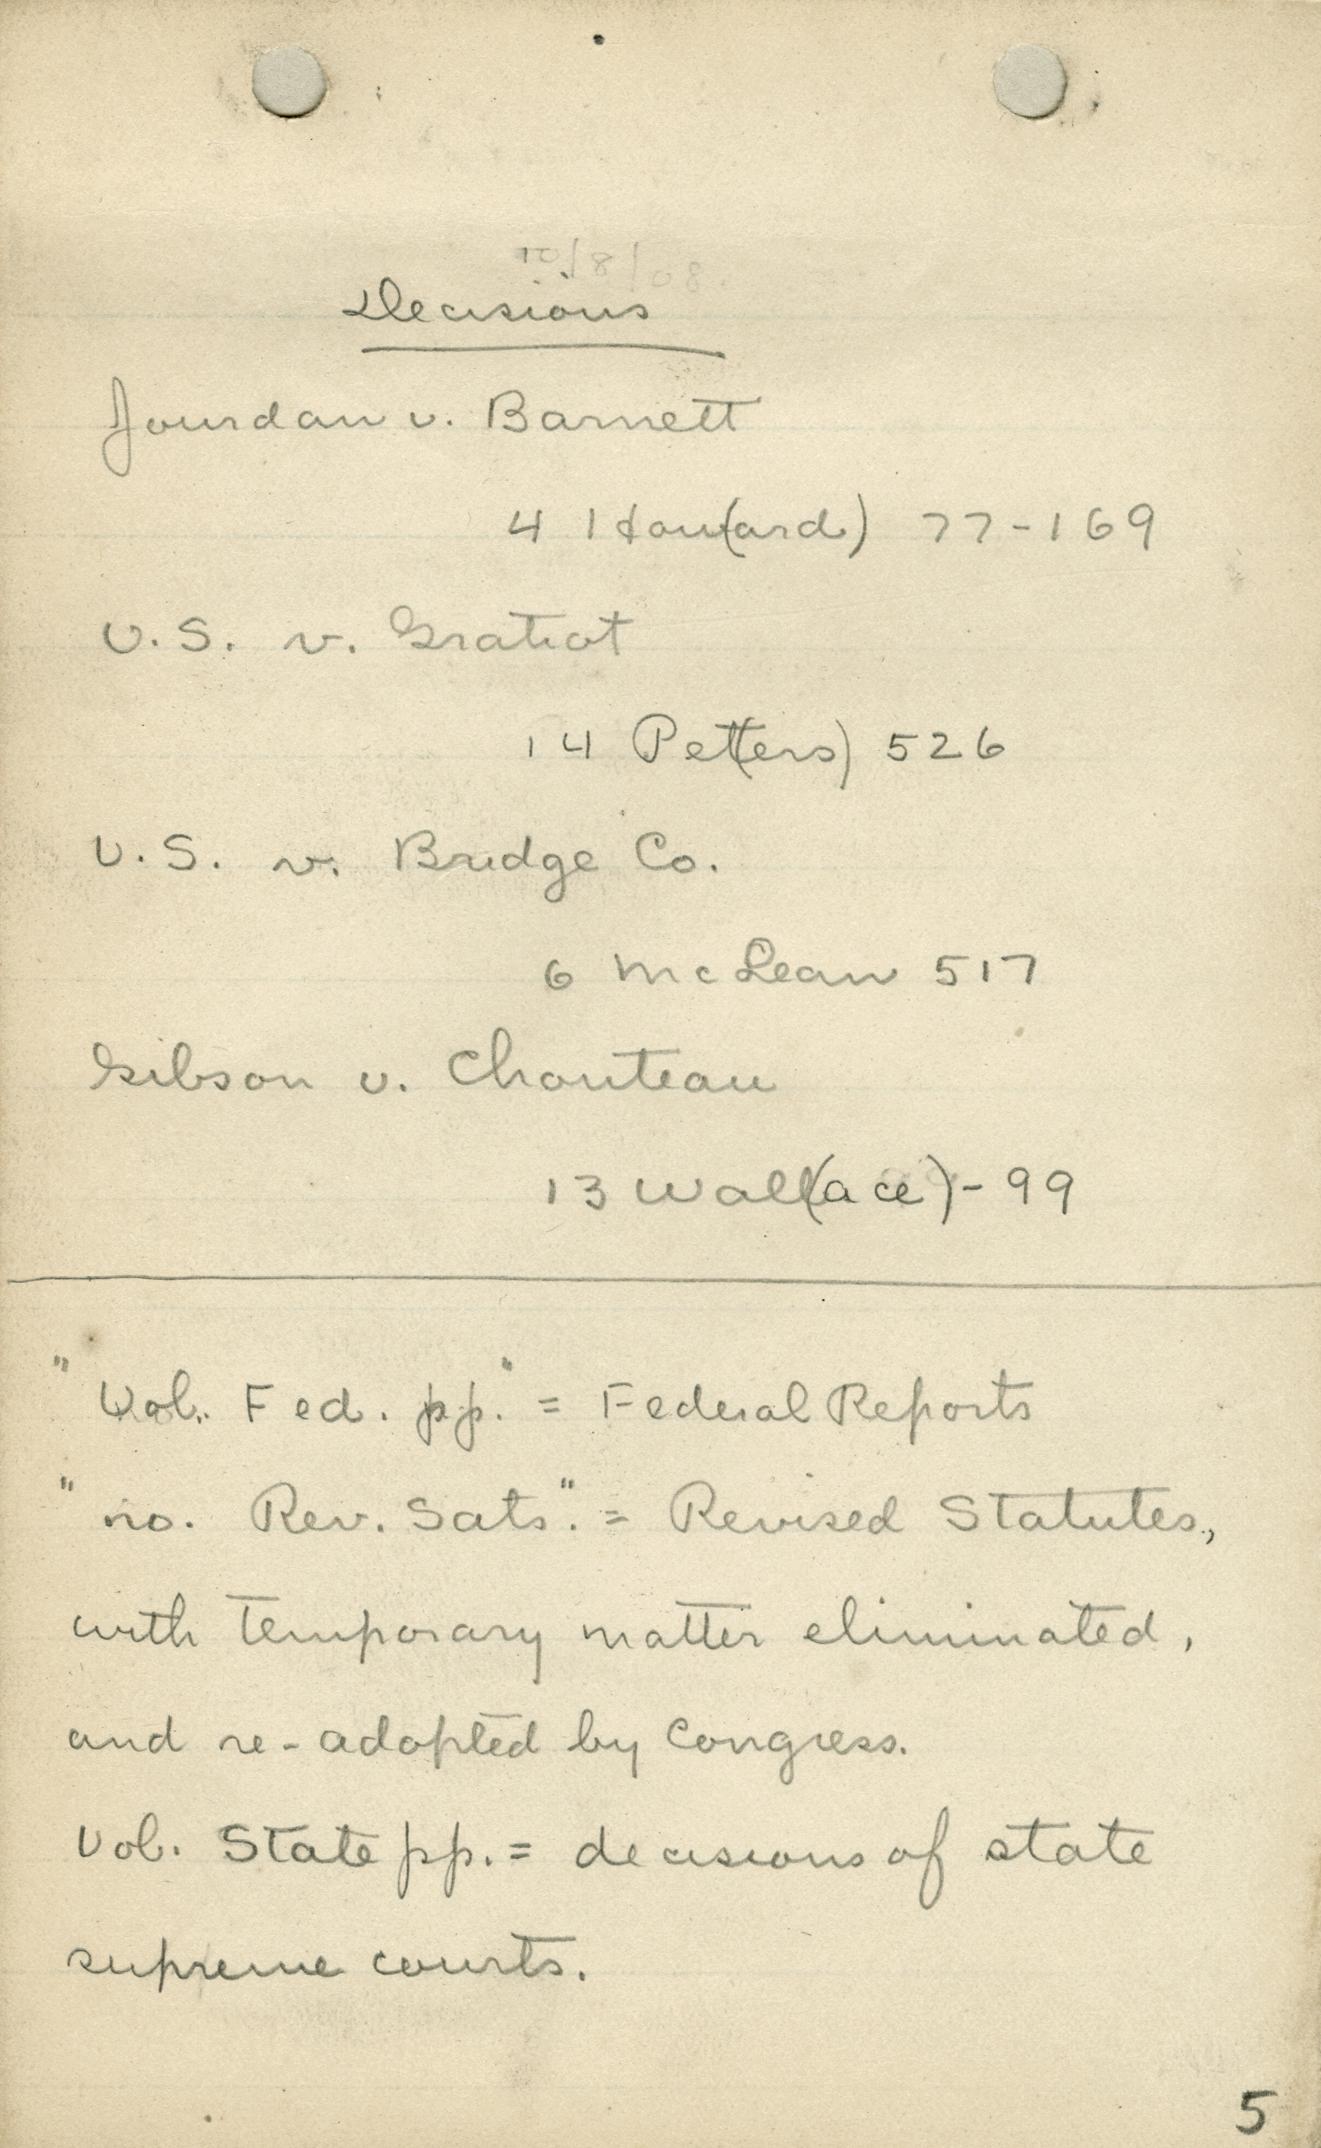 10/8/08.
Decisions
Jourdan v. Barnett
4 How(ard) 77-169
U.S. v. Gratiot
14 Pet(ers) 526
U.S. v. Bridge Co.
6 McLean 517
Gibson v. Chouteau
13 Wall(ace)-99
"Vol. Fed. pp." = Federal Reports
"no. Rev. Sats." = Revised Statutes,
with temporary matter eliminated,
and re-adopted by Congress.
Vol. State pp. = decisions of state
supreme courts.
5